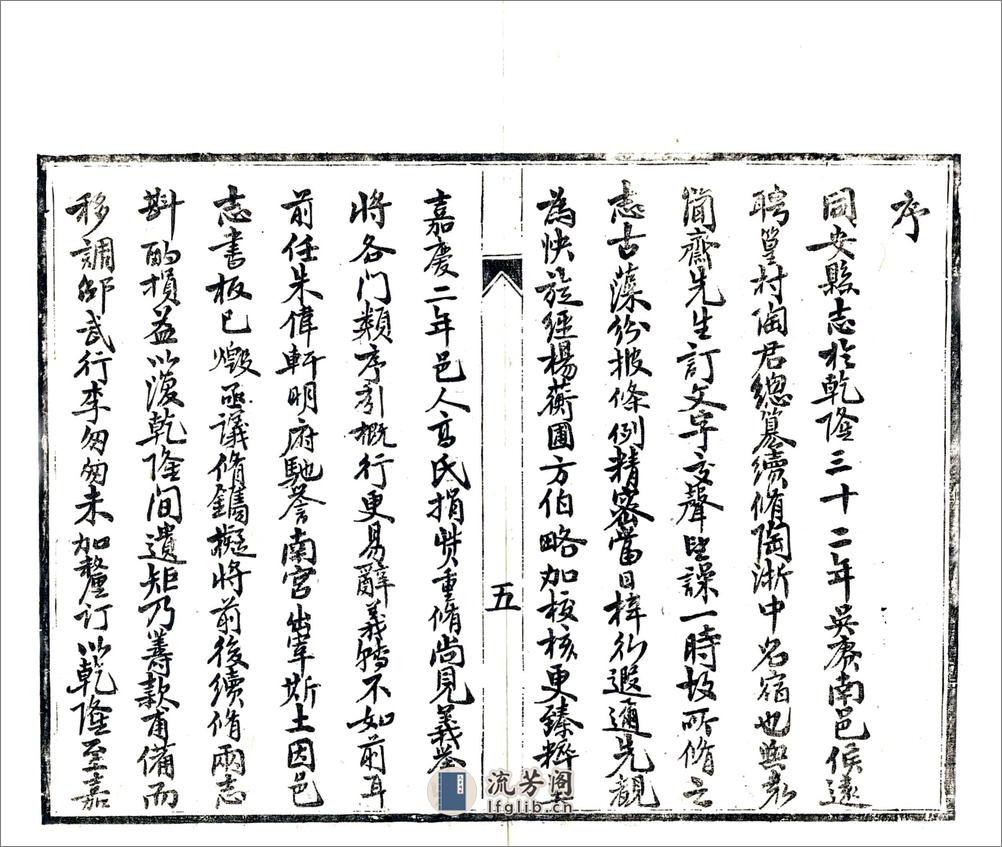 序
同安縣志於乾隆三十二年吳庚南邑侯遠
聘篁村陶君總纂續脩陶浙中名宿也與袁
簡齋先生訂文字交聲望譟一時故所脩之
志古藻紛披條例精密當日梓行遐邇先覩
為快旋經楊蓊圃方伯略加核核更臻粹
五
嘉慶二年邑人高氏捐貲重脩尚見義舉
將各門類序引概行更易辭義轉不如前耳
前任朱偉軒明府馳譽南宮出宰斯土因邑
志書板已燬亟議脩鐫擬將前後續脩兩志
斟酌損益以復乾隆間遺矩乃籌款甫備而
移調邵武行李匆匆未加釐訂以乾隆至嘉
流芳閣
lfglib.cn